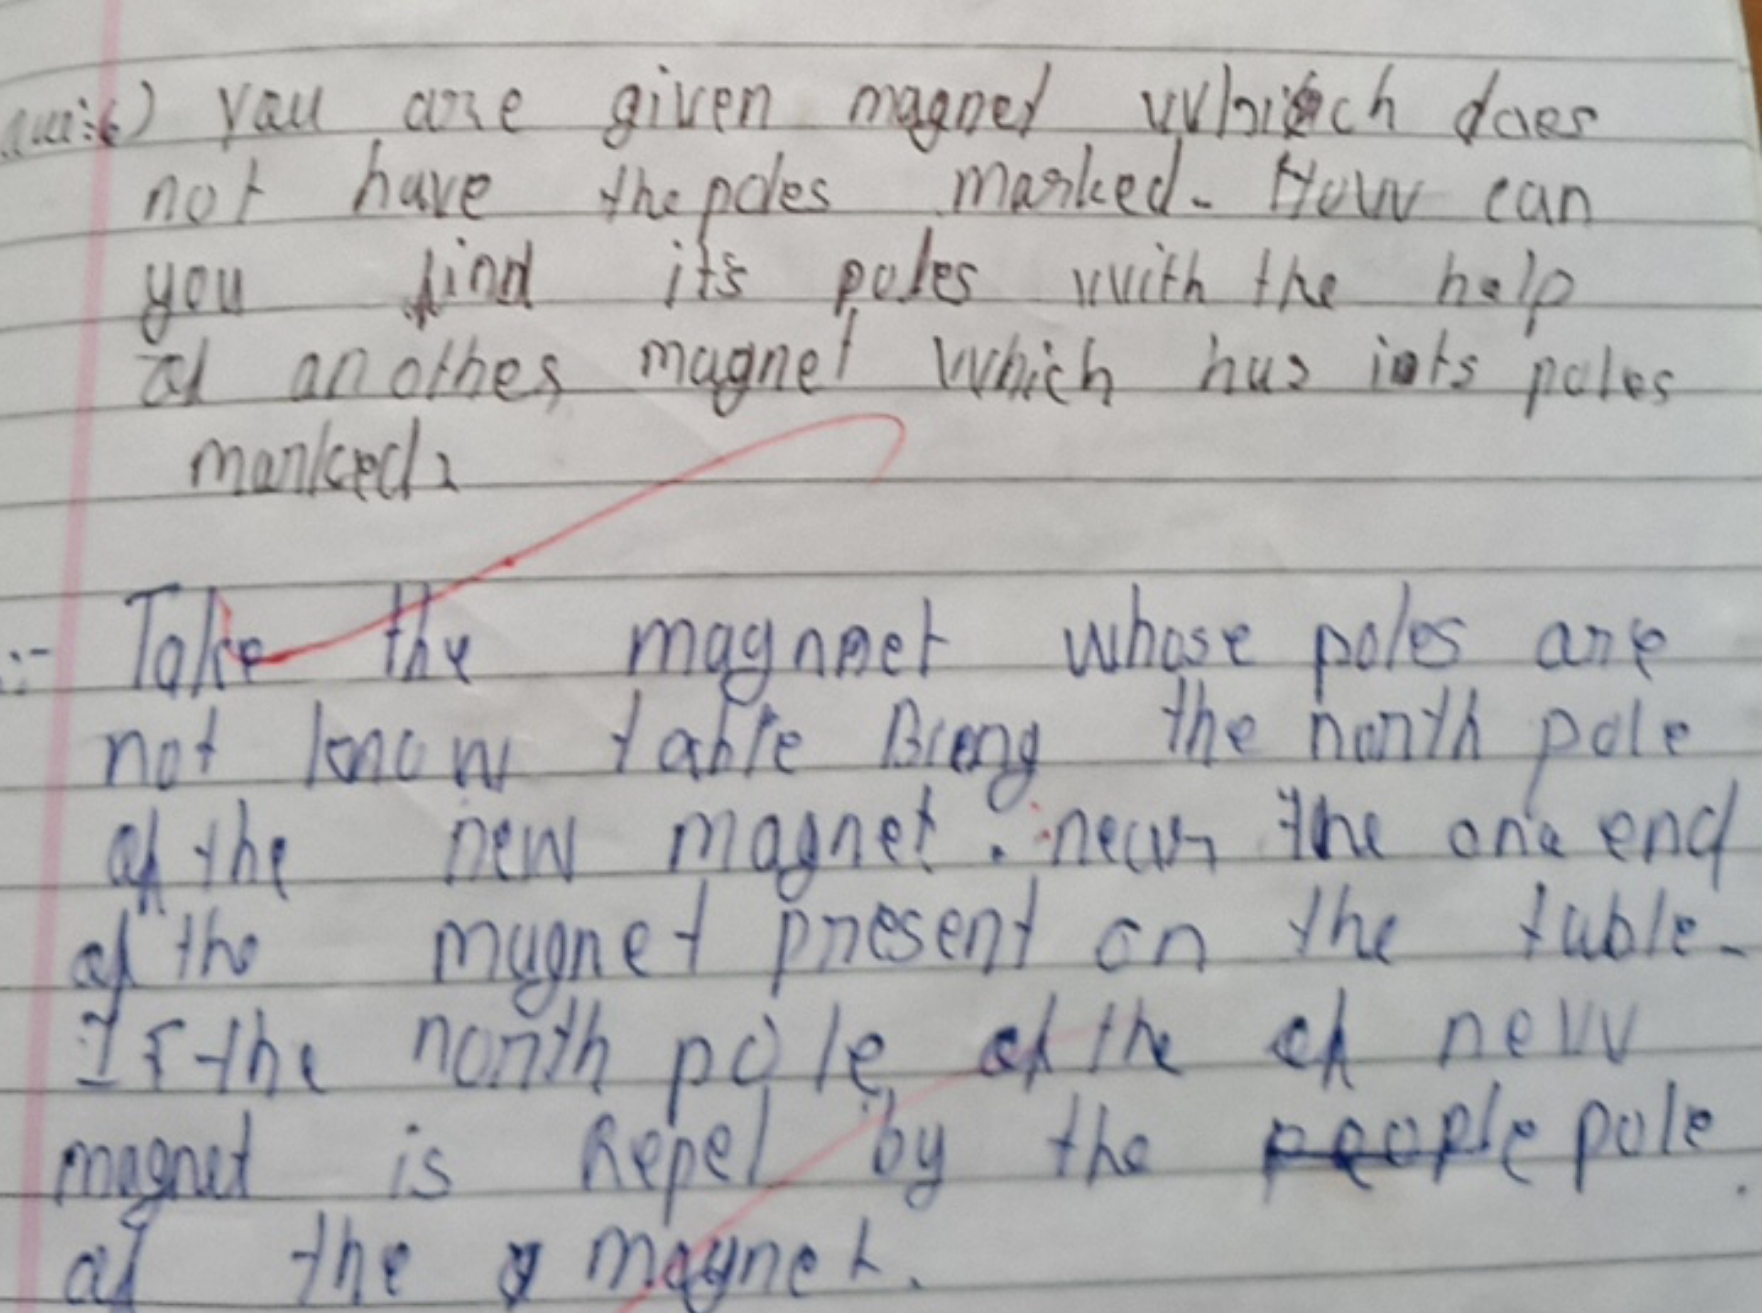 You are given magnet which does
not have the poles marked. How can
you find its poles with the help
of another magnet which has its poles
marked?
:- Take the magnaet whose poles are
not know table Breng the north pole
of the new magnet. near the one end
of the magnet present on the table.
If the north pole of the of new
magnet is Repel by the people pole.
of the magnet.